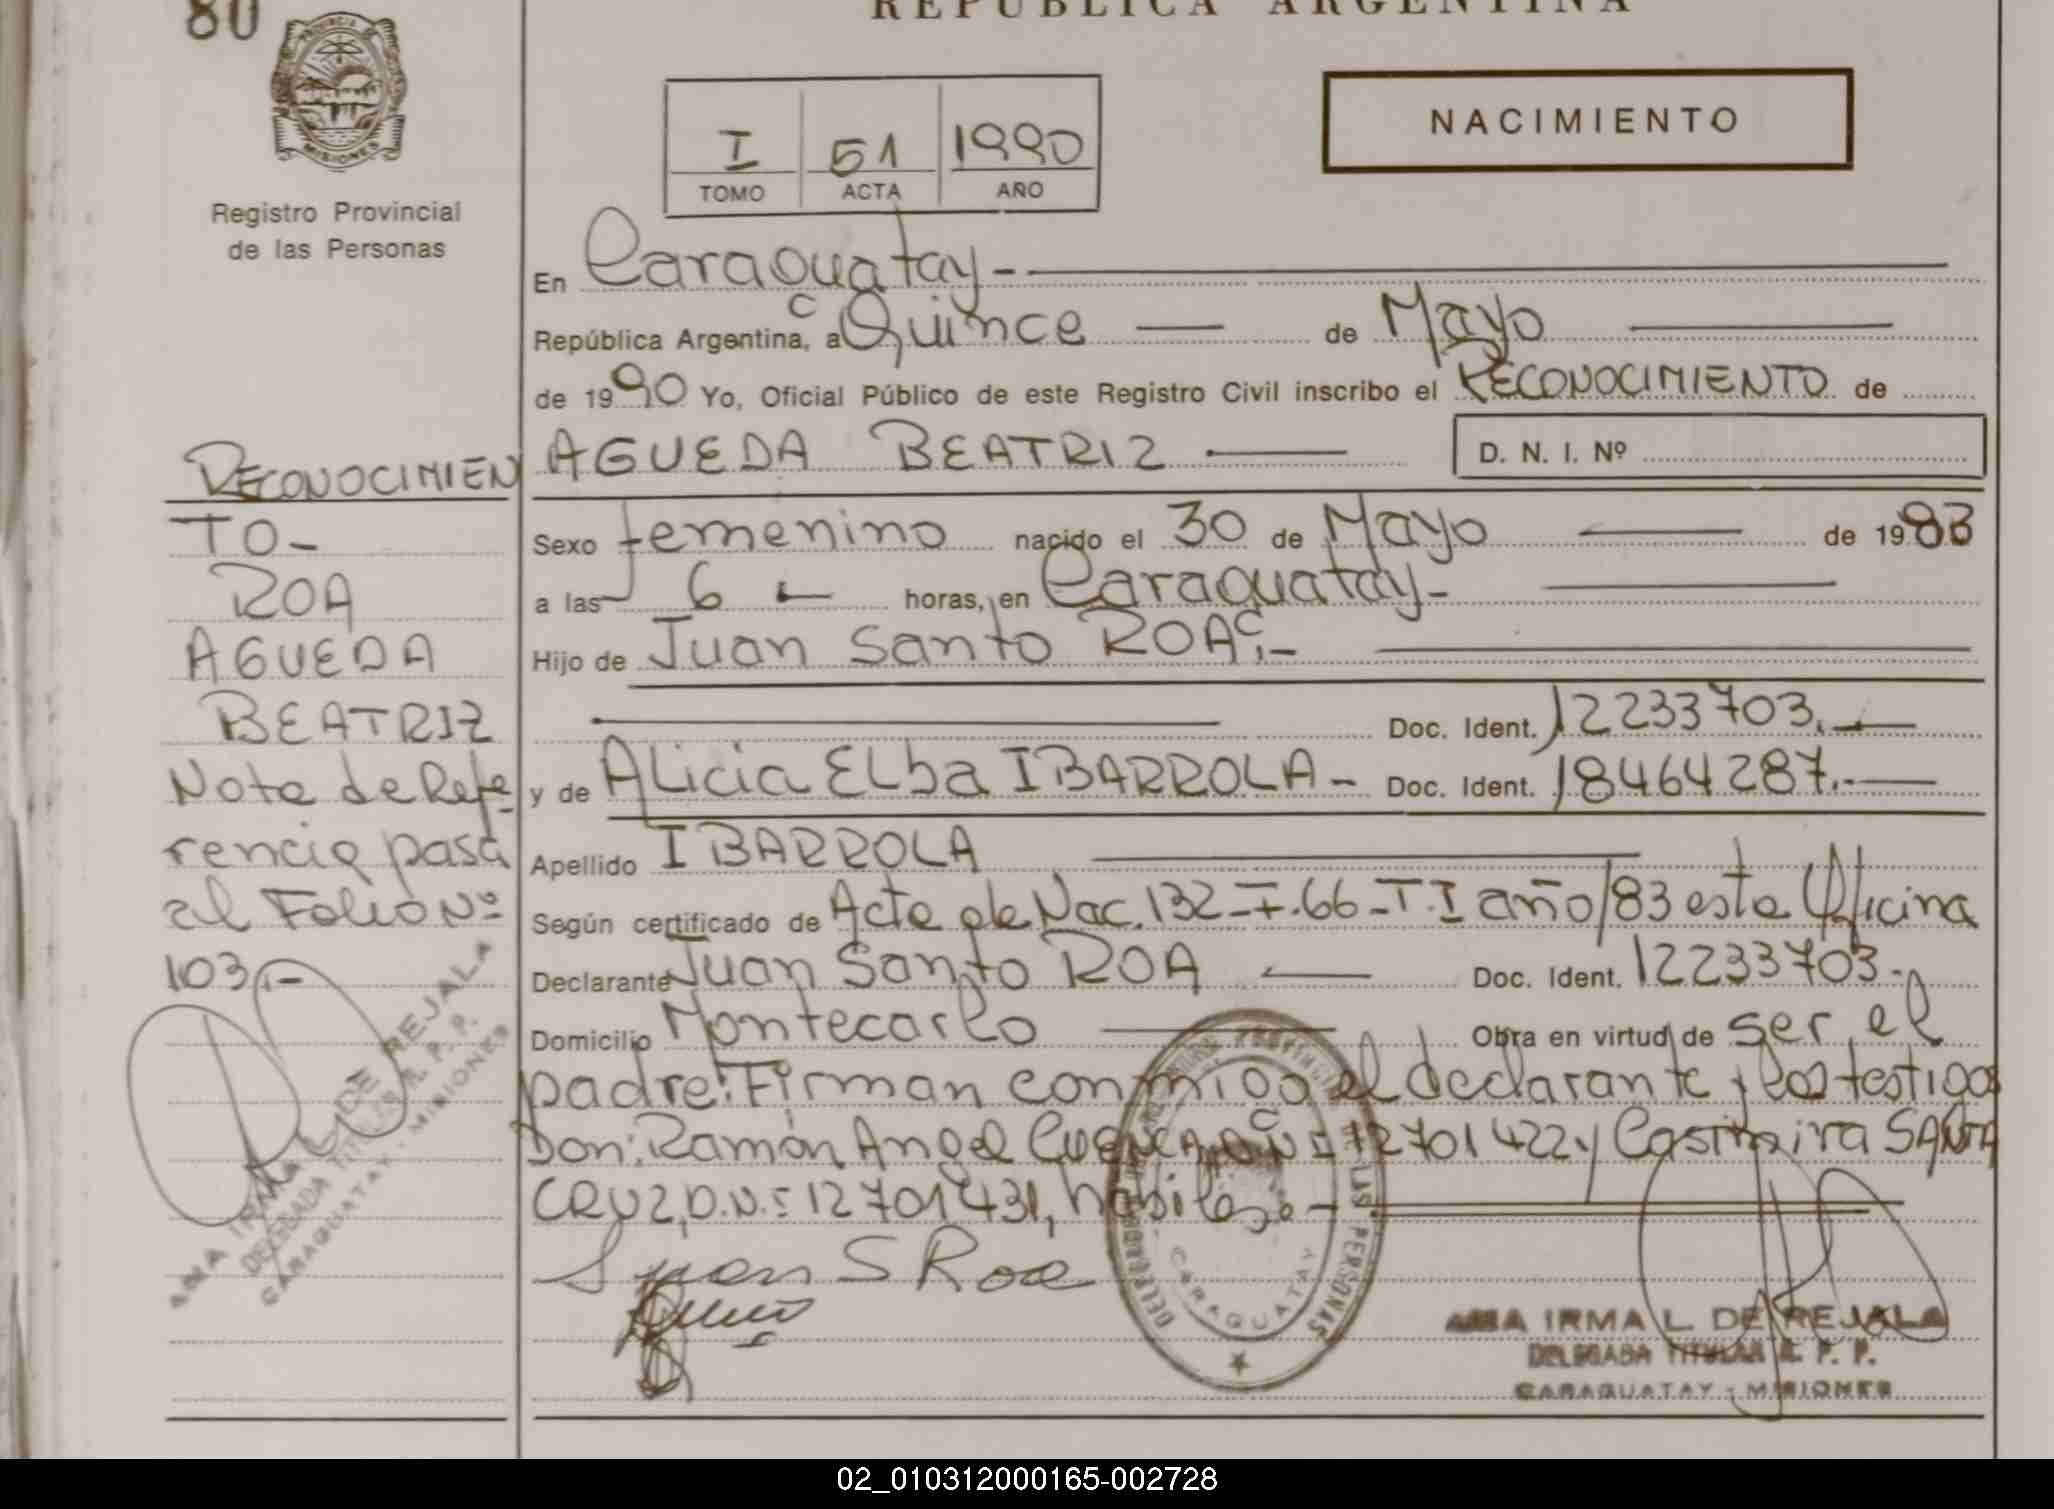 80
REPUBLICA ARGENTINA
PROVINCIA DE
MISIONES
Registro Provincial
de las Personas
I 51 1990
TOMO ACTA AÑO
NACIMIENTO
En Caraguatay -
República Argentina, a Quince de Mayo
de 1990 Yo, Oficial Público de este Registro Civil inscribo el RECONOCIMIENTO de
AGUEDA BEATRIZ D. N. I. Nº
Sexo femenino nacido el 30 de Mayo de 1983
a las 6 horas, en Caraguatay-
Hijo de Juan Santo ROA
Doc. Ident. 12233703.-
y de ALicia ELba IBARROLA - Doc. Ident. 18464287.-
Apellido IBARROLA
Según certificado de Acta de Nac. 132-F.66-T.I año/83 esta Oficina
Declarante Juan Santo ROA Doc. Ident. 12233703.
Domicilio Montecarlo Obra en virtud de ser el
padre: Firman conmigo el declarante y los testigos
Don: Ramón Angel CUENCA 12701422 y Casimira SANTA
CRUZ, D.N.: 12701431, habiles.-
Juan S Roa
RECONOCIMIEN
TO-
ROA
AGUEDA
BEATRIZ
Nota de Refe-
rencia pasa
al Folio Nº
103.-
ANA IRMA L. DE REJALA
DELEGADA TITULAR R. P. P.
CARAGUATAY - MISIONES
PROVINCIAL DE LAS PERSONAS
CARAGUATAY
ANA IRMA L. DE REJALA
DELEGADA TITULAR R. P. P.
CARAGUATAY - MISIONES
02_010312000165-002728